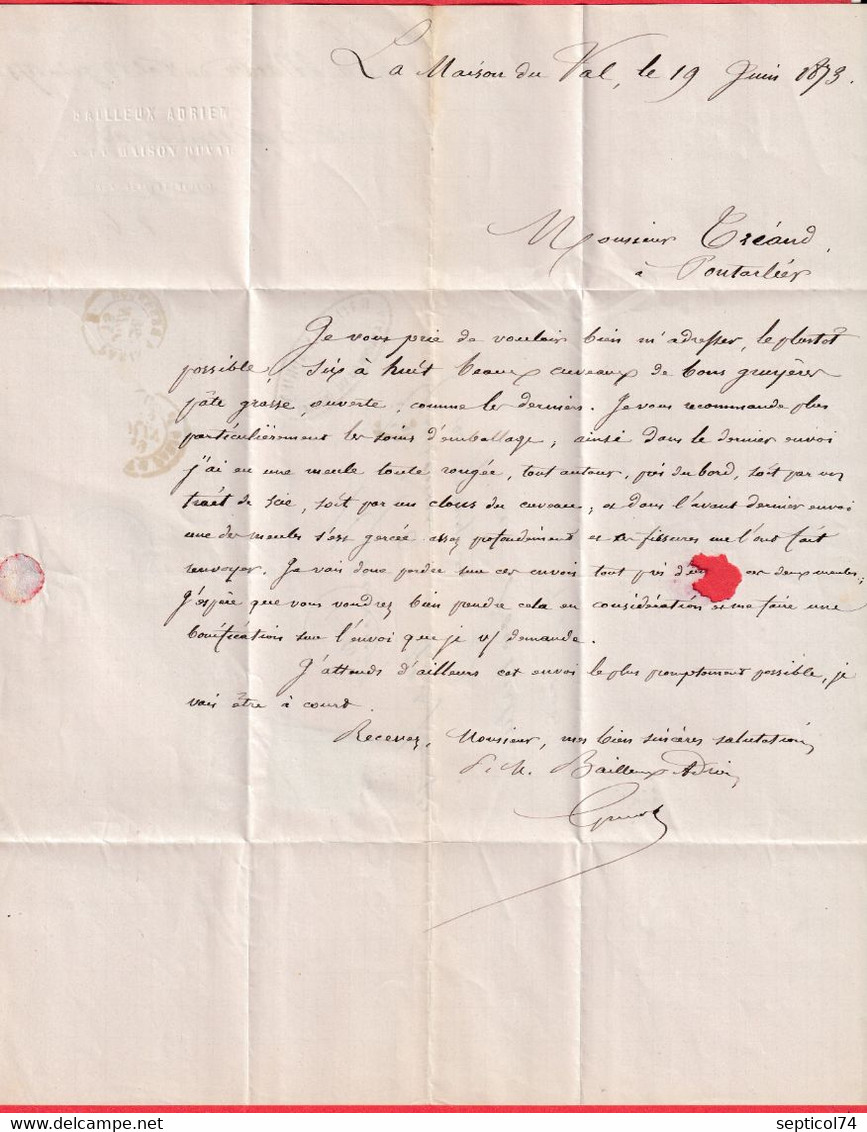 La Maison du Val, le 19 Juin 1873.
BAILLEUX ADRIEN
MAISON DUVAL
Monsieur Tréand,
à Pontarlier
Je vous prie de vouloir bien m'adresser, le plustot
possible, six à huit beaux cuveaux de bons gruyères
pâte grasse, ouverte, comme les derniers. Je vous recommande plus
particulièrement les soins d'emballage; ainsi dans le dernier envoi
j'ai eu une meule toute rongée, tout autour, près du bord, soit par un
trait de scie, soit par un clous du cuveau; et dans l'avant dernier envoi
une des meules s'est gercée assez profondément et les fissures me l'ont fait
renvoyer. Je vais donc perdre sur ces envois tout près d'une ces deux meules;
J'espère que vous voudrez bien prendre cela en considération et me faire une
bonification sur l'envoi que je v/ demande.
J'attends d'ailleurs cet envoi le plus promptement possible, je
vais être à court.
Recevez, Monsieur, mes bien sincères salutations
Bailleux Adrien
septicol74